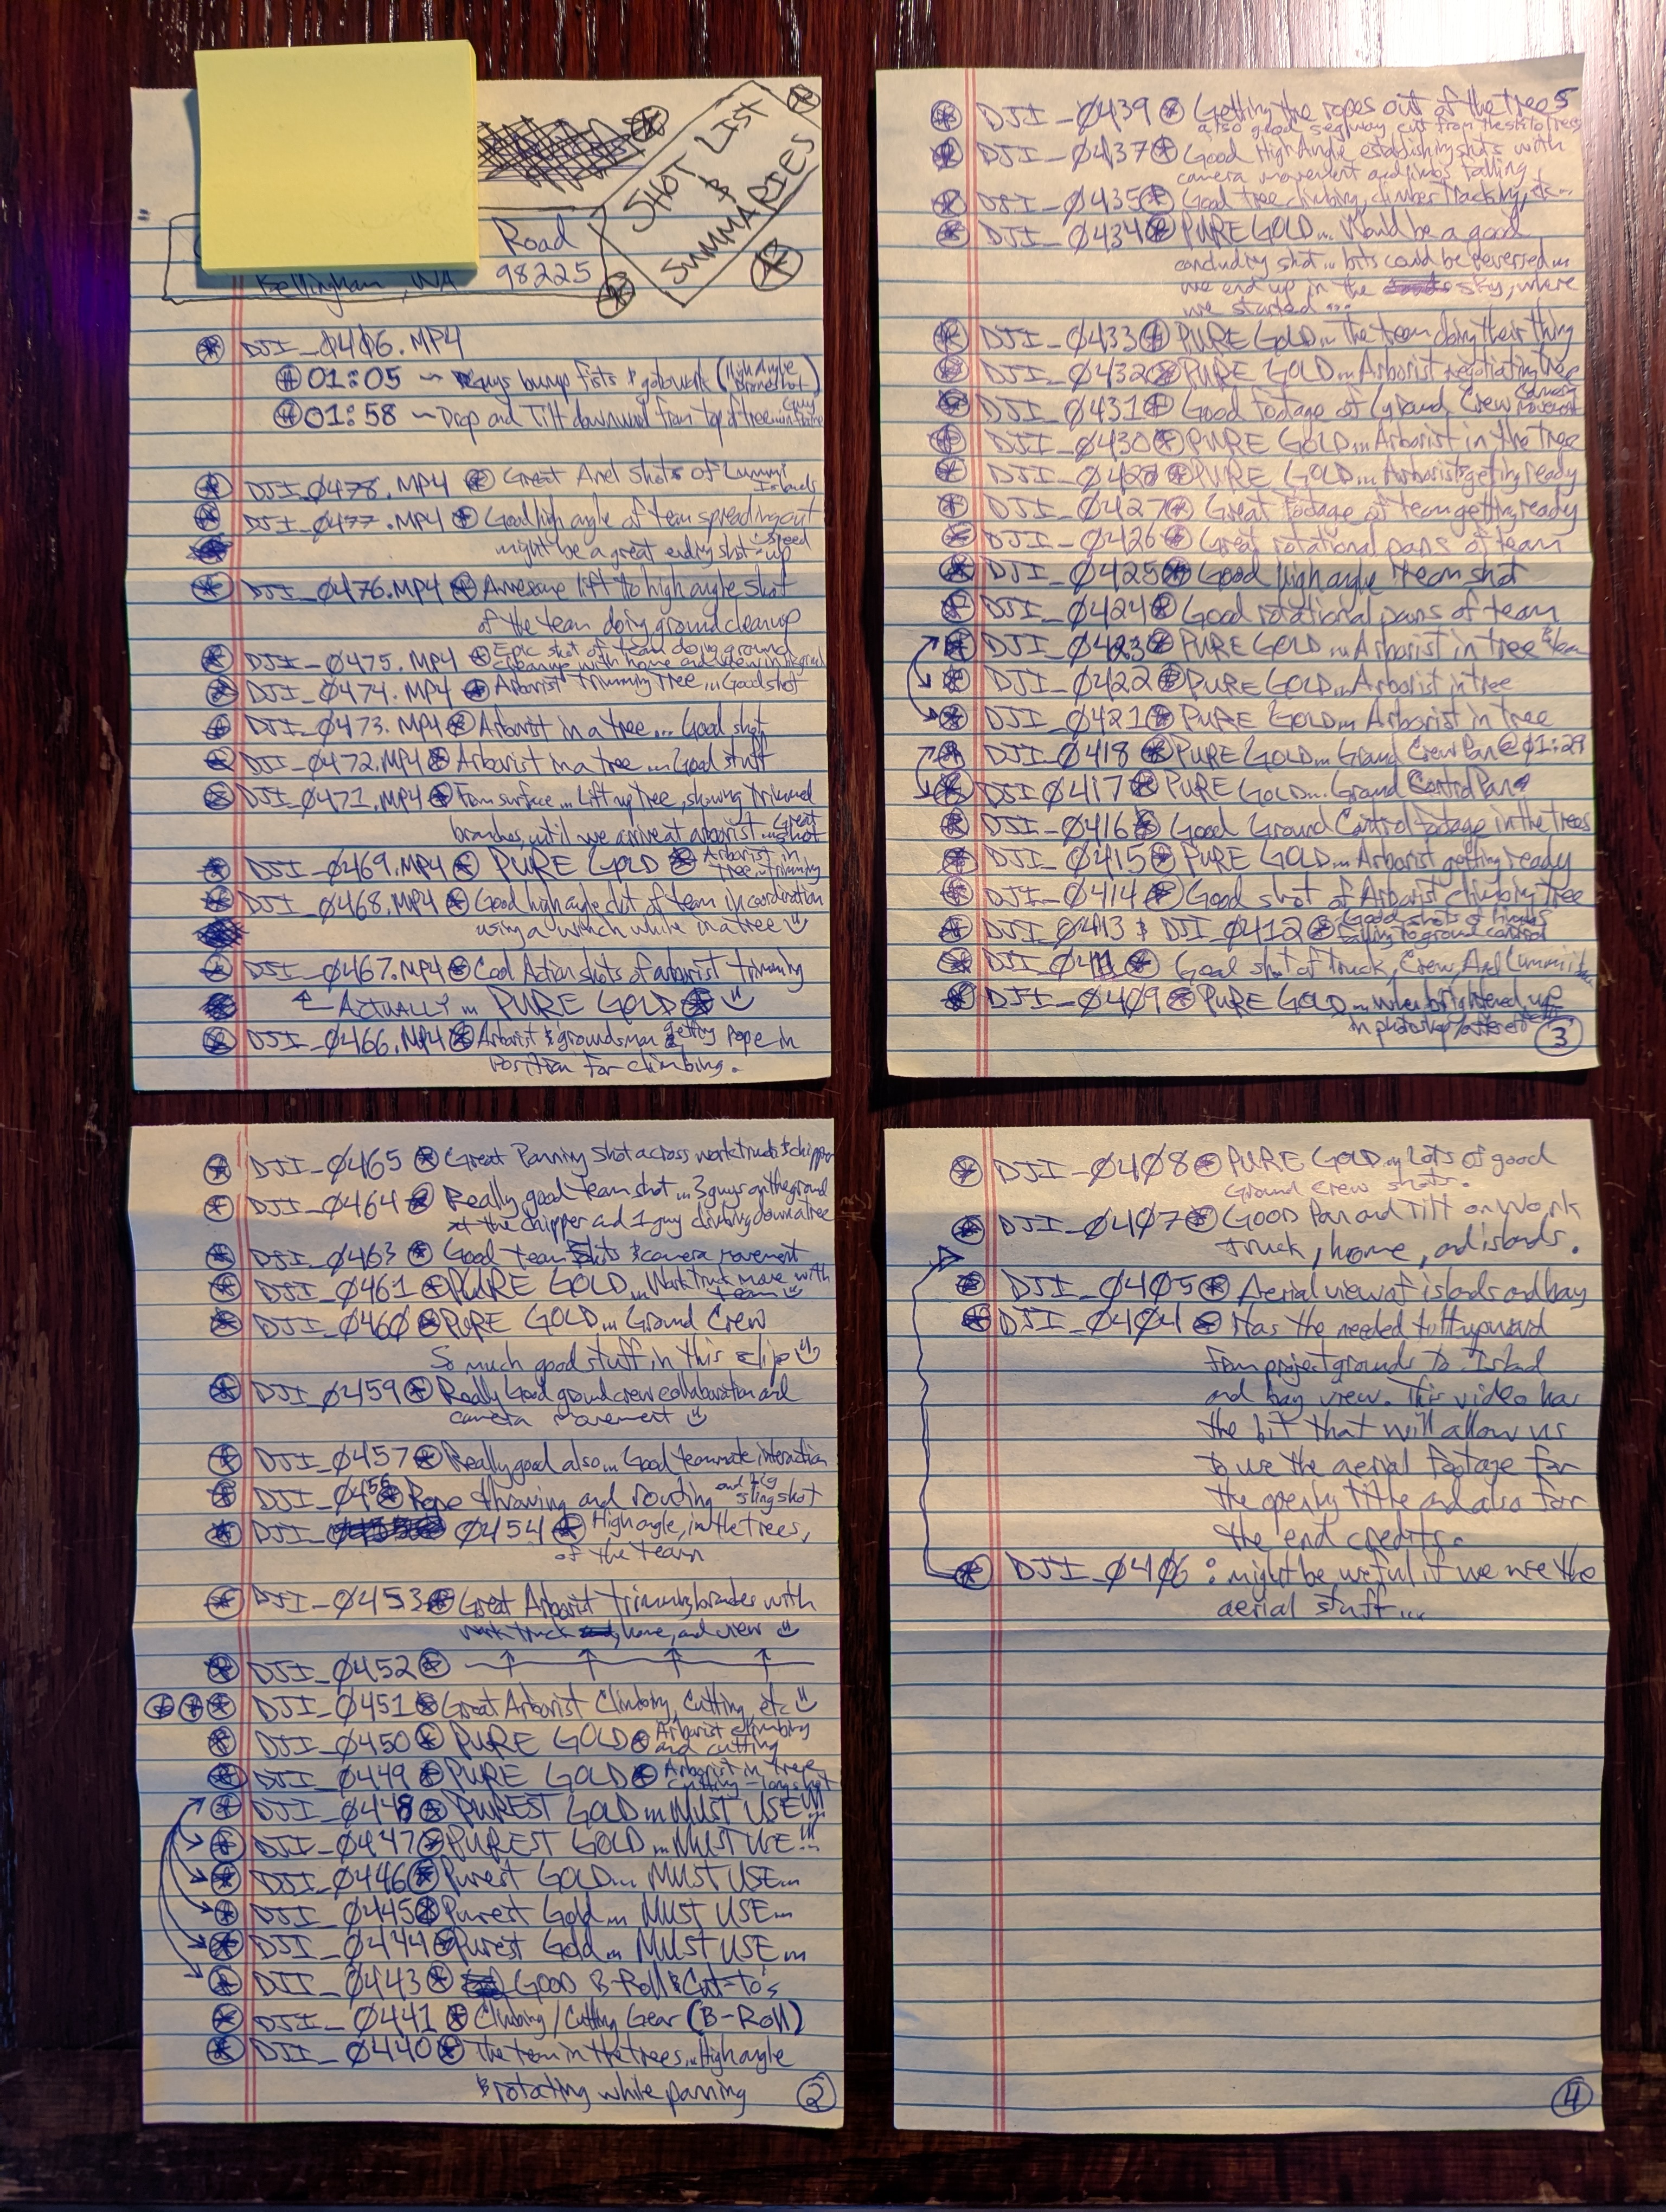 SHOT LIST
&
SUMMARIES
Road
Bellingham, WA 98225
DJI_0406.MP4
01:05 ~ Guys bump fists & go to work (High Angle
01:58 ~ Drop and Tilt downward from top of tree
DJI_0478.MP4 Great Ariel shots of Lummi
Islands
DJI_0477.MP4 Good high angle of team spreading out
might be a great ending shot - speed
up
DJI_0476.MP4 Awesome lift to high angle shot
of the team doing ground cleanup
DJI_0475.MP4 Epic shot of team doing ground
cleanup with home and view in
DJI_0474.MP4 Arborist Trimming Tree... Good shot
DJI_0473.MP4 Arborist in a tree... Good shot
DJI_0472.MP4 Arborist in a tree... Good stuff
DJI_0471.MP4 From surface... Lift up Tree, showing trimmed
branches, until we arrive at arborist... Great
shot
DJI_0469.MP4 PURE GOLD Arborist in
Tree... trimming
DJI_0468.MP4 Good high angle shot of team in coordination
using a winch while in a tree
DJI_0467.MP4 Cool Action shots of arborist trimming
ACTUALLY... PURE GOLD
DJI_0466.MP4 Arborist & groundsman getting rope in
Position for climbing.
DJI_0465 Great Panning shot across work truck & chipper
DJI_0464 Really good team shot... 3 guys on the ground
at the chipper and 1 guy climbing down a tree
DJI_0463 Good team shots & camera movement
DJI_0461 PURE GOLD... Work Truck move with
team
DJI_0460 PURE GOLD... Ground Crew
So much good stuff in this clip
DJI_0459 Really Good ground crew collaboration and
camera movement
DJI_0457 Really good also... Good teammate interaction
DJI_0456 Rope throwing and routing and big
slingshot
DJI_ 0454 High angle, in the trees,
of the team
DJI_0453 Great Arborist trimming branches with
work truck, home, and view
DJI_0452
DJI_0451 Great Arborist Climbing, Cutting, etc
DJI_0450 PURE GOLD Arborist climbing
and cutting
DJI_0449 PURE GOLD Arborist in tree
cutting - long shot
DJI_0448 PUREST GOLD... MUST USE!!!
DJI_0447 PUREST GOLD... MUST USE!!!
DJI_0446 Purest GOLD... MUST USE...
DJI_0445 Purest Gold... MUST USE...
DJI_0444 Purest Gold... MUST USE...
DJI_0443 GOOD B-Roll & Cut-to's
DJI_0441 Climbing/Cutting Gear (B-Roll)
DJI_0440 The team in the trees... High angle
& rotating while panning
2
DJI_0439 Getting the ropes out of the trees
also good segway cut from the to trees
DJI_0437 Good High Angle establishing shots with
camera movement and limbs falling
DJI_0435 Good tree climbing, climber tracking, etc...
DJI_0434 PURE GOLD... Would be a good
concluding shot... bits could be reversed...
we end up in the sky, where
we started...
DJI_0433 PURE GOLD... The team doing their thing
DJI_0432 PURE GOLD... Arborist negotiating tree
DJI_0431 Good footage of Ground Crew Camera
movement
DJI_0430 PURE GOLD... Arborist in the tree
DJI_0428 PURE GOLD... Arborists getting ready
DJI_0427 Great footage of team getting ready
DJI_0426 Great rotational pans of team
DJI_0425 Good high angle team shot
DJI_0424 Good rotational pans of team
DJI_0423 PURE GOLD... Arborist in tree & team
DJI_0422 PURE GOLD... Arborist in tree
DJI_0421 PURE GOLD... Arborist in tree
DJI_0418 PURE GOLD... Ground Crew Pan @ 01:29
DJI_0417 PURE GOLD... Ground Control Pan
DJI_0416 Good Ground Control footage in the trees
DJI_0415 PURE GOLD... Arborist getting ready
DJI_0414 Good shot of Arborist climbing tree
DJI_0413 & DJI_0412 Good shots of limbs
falling to ground control
DJI_0411 Good shot of truck, Crew, And Lummi
DJI_0409 PURE GOLD... when brightened up
in photoshop
3
DJI_0408 PURE GOLD... Lots of good
Ground Crew shots.
DJI_0407 GOOD Pan and Tilt on Work
truck, home, and islands.
DJI_0405 Aerial view of islands and bay
DJI_0404 Has the needed tilt upward
from project grounds to Island
and bay view. This video has
the bit that will allow us
to use the aerial footage for
the opening title and also for
the end credits.
DJI_0406: might be useful if we use the
aerial stuff...
4